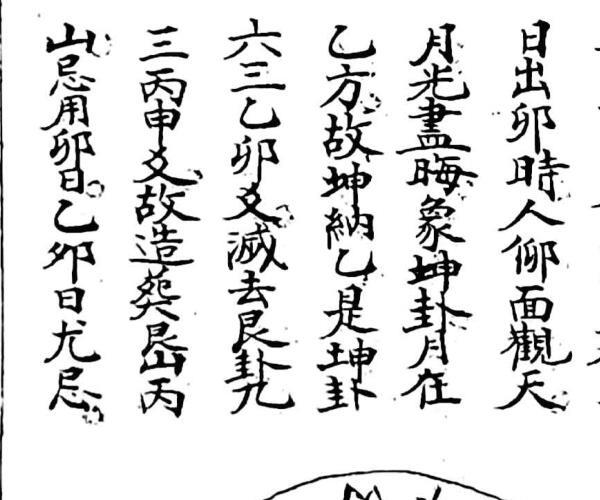 日出卯時人仰面觀天
月光盡晦象坤卦月在
乙方故坤納乙是坤卦
六三乙卯爻滅去艮卦九
三丙申爻故造葬艮山丙
山忌用卯日乙卯日尤忌